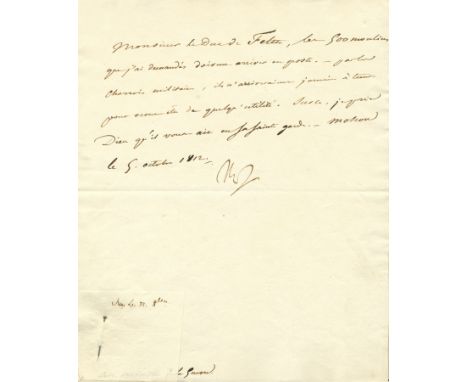 Monsieur le Duc de Feltre, les 500 moulins
que j'ai demandés doivent arriver en poste. - par les
charrois militaires, ils n'arriveraient jamais à tems
pour nous être de quelque utilité. Sur ce, je prie
Dieu qu'il vous ait en sa saint garde. - Moscou
le 5. octobre 1812.
Np
le
la Guerre